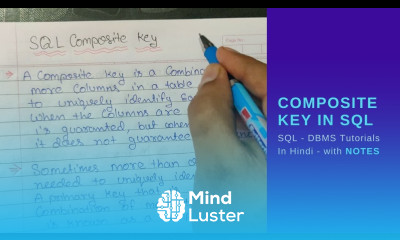 SQL Composite key
A Composite key is a Combina
more Columns in a table
to uniquely identify
When the Columns are
is guaranteed, but when
it does not guarantee
Sometimes more than
needed to uniquely
A primary key that
Combination of
is known as a
COMPOSITE
KEY IN SQL
SQL - DBMS Tutorials
In Hindi - with NOTES
Mind
Luster